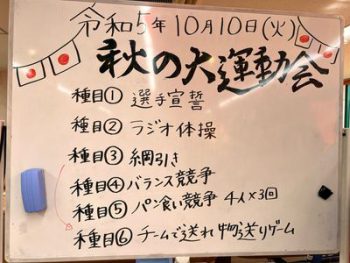 令和5年10月10日(火)
秋の大運動会
種目① 選手宣誓
種目② ラジオ体操
種目③ 綱引き
種目④ バランス競争
種目⑤ パン食い競争 4人×3回
種目⑥ チームで送れ 物送りゲーム